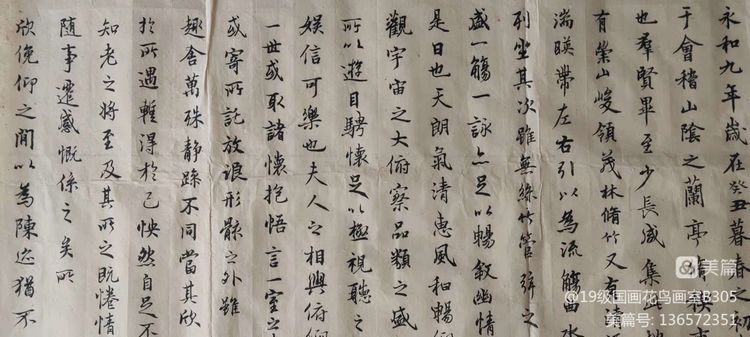 永和九年歲在癸丑暮春之初
于會稽山陰之蘭亭
也羣賢畢至少長咸集
有崇山峻領茂林脩竹又有清
湍暎帶左右引以為流觴曲水
列坐其次雖無絲竹管弦之
盛一觴一詠亦足以暢敘幽情
是日也天朗氣清惠風和暢仰
觀宇宙之大俯察品類之盛
所以遊目騁懷足以極視聽之
娛信可樂也夫人之相與俯仰
一世或取諸懷抱悟言一室之
或寄所託放浪形骸之外雖
趣舍萬殊靜躁不同當其欣
於所遇暫得於己怏然自足不
知老之將至及其所之既惓情
隨事遷感慨係之矣所
欣俛仰之閒以為陳迹猶不
美篇
@19级国画花鸟画室B305
美篇号: 136572351